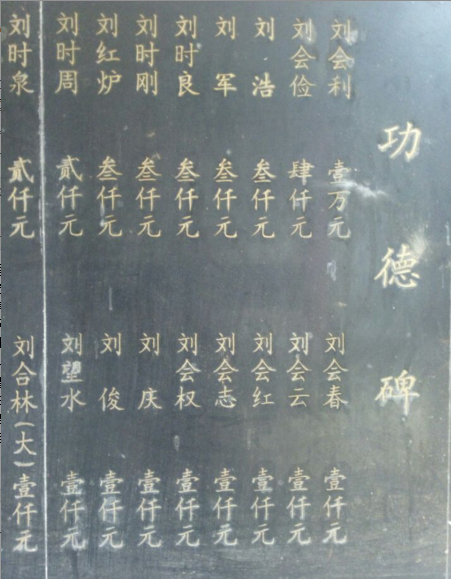 功德碑
刘会利 壹万元
刘会俭 肆仟元
刘浩 叁仟元
刘军 叁仟元
刘时良 叁仟元
刘时刚 叁仟元
刘红炉 叁仟元
刘时周 贰仟元
刘时泉 贰仟元
刘会春 壹仟元
刘会云 壹仟元
刘会红 壹仟元
刘会志 壹仟元
刘会权 壹仟元
刘庆 壹仟元
刘俊 壹仟元
刘望水 壹仟元
刘合林(大) 壹仟元